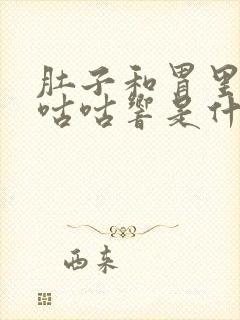 肚子和胃里
咕咕响是什
西来